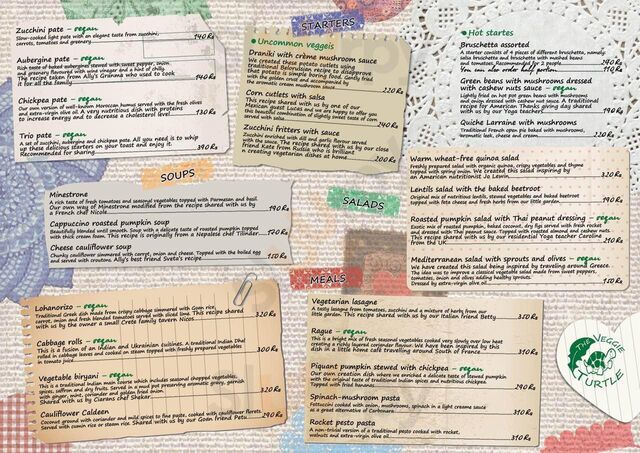 STARTERS
Zucchini pate – vegan
Slow-cooked light pate with an elegant taste from zucchini,
carrots, tomatoes and greenery 140 Rs
Aubergine pate – vegan
Rich taste of baked aubergines stewed with sweet pepper, onion
and greenery flavoured with wine vinegar and a hint of chilly.
The recipe taken from Ally's Granna who used to cook
it for all the family 140 Rs
Chickpea pate – vegan
Our own version of well-known Moroccan humus served with the fresh olives
and extra-virgin olive oil. A very nutritious dish with proteins
to increase energy and to decrease a cholesterol level 130 Rs
Trio pate – vegan
A set of zucchini, aubergine and chickpea pate. All you need is to whip
up these delicious starters on your toast and enjoy it.
Recommended for sharing 390 Rs
Uncommon veggeis
Draniki with crème mushroom sauce
We created these potato cutlets using
traditional Belorussian recipe to disapprove
that potato is simple boring food. Gently fried
with the golden crust and accompanied by
the aromatic cream mushroom sauce 220 Rs
Corn cutlets with salsa
This recipe shared with us by one of our
Mexican guest Lucas and we are happy to offer you
this beautiful combination of slightly sweet taste of corn
served with salsa 240 Rs
Zucchini fritters with sauce
Zucchini enriched with dill and garlic flavour served
with the sauce. The recipe shared with us by our close
friend Kate from Russia who is brilliant
in creating vegetarian dishes at home 200 Rs
Hot startes
Bruschetta assorted
A starter consists of 4 pieces of different bruschetta, namely:
salsa bruschetta and bruschetta with mashed beans
and tomatoes. Recommended for 2 people 190 Rs
You can also order half portion 110 Rs
Green beans with mushrooms dressed
with cashew nuts sauce – vegan
Lightly fried on hot pot green beans with mushrooms
and onions dressed with cashew nut sauce. A traditional
recipe for American Thanks giving day shared
with us by our Yoga teachers 190 Rs
Quiche Larraine with mushrooms
Traditional French open pie baked with mushrooms,
aromatic leek, cheese and cream 220 Rs
SOUPS
Minestrone
A rich taste of fresh tomatoes and seasonal vegetables topped with Parmesan and basil.
Our own way of Minestrone modified from the recipe shared with us by
a French chef Nicole 190 Rs
Cappuccino roasted pumpkin soup
Beautifully blended until smooth. Soup with a delicate taste of roasted pumpkin topped
with thick cream foam. This recipe is originally from a Nepalese chef Tilinder 170 Rs
Cheese cauliflower soup
Chunky cauliflower simmered with carrot, onion and cheese. Topped with the boiled egg
and served with croutons. Ally's best friend Sveta's recipe 180 Rs
SALADS
Warm wheat-free quinoa salad
Freshly prepared salad with organic quinoa, crispy vegetables and thyme
topped with spring onion. We created this salad inspiring by
an American nutritionist Jo Levin 320 Rs
Lentils salad with the baked beetroot
Original mix of nutritious lentils, stewed vegetables and baked beetroot
topped with feta cheese and fresh herbs from our little garden 190 Rs
Roasted pumpkin salad with Thai peanut dressing – vegan
Exotic mix of roasted pumpkin, baked coconut, dry figs served with fresh rocket
and dressed with Thai peanut sauce. Topped with roasted almond and cashew nuts.
The recipe shared with us by our residential Yoga teacher Caroline
from the UK 290 Rs
Mediterranean salad with sprouts and olives – vegan
We have created this salad being inspired by traveling around Greece.
The idea was to improve a classical vegetable salad made from sweet peppers,
tomatoes, onion and olives adding healthy sprouts.
Dressed by extra-virgin olive oil 180 Rs
MEALS
Lohanorizo – vegan
Traditional Greek dish made from crispy cabbage simmered with Goan rice,
carrot, onion and fresh blended tomatoes. Served with sliced lime. This recipe shared
with us by the owner a small Crete family tavern Nicos 320 Rs
Cabbage rolls – vegan
This is a fusion of an Indian and Ukrainian cuisines. A traditional Indian Dhal
rolled in cabbage leaves and cooked on steam topped with freshly prepared vegetables
in tomato juice 300 Rs
Vegetable biryani – vegan
This is a traditional Indian main course which includes seasonal chopped vegetables,
spices, saffron and dry fruits. Served in a mud pot preserving aromatic gravy, garnish
with ginger, mint, coriander and golden fried onion.
Shared with us by Garnes chef Shekar 320 Rs
Cauliflower Caldeen
Coconut ground with coriander and mild spices to fine paste, cooked with cauliflower florets.
Served with cumin rice or steam rice. Shared with us by our Goan friend Petu 290 Rs
Vegetarian lasagne
A tasty lasagna from tomatoes, zucchini and a mixture of herbs from our
little garden. This recipe shared with us by our Italian friend Betty 350 Rs
Rague – vegan
This is a bright mix of fresh seasonal vegetables cooked very slowly over low heat
creating a richly layered coriander flavour. We have been inspired by this
dish in a little home cafe travelling around South of France 310 Rs
Piquant pumpkin stewed with chickpea – vegan
Our own creation dish where we enriched a delicate taste of stewed pumpkin
with the original taste of traditional Indian spices and nutritious chickpea.
Topped with fried bananas 290 Rs
Spinach-mushroom pasta
Fettuccini cooked with onion, mushrooms, spinach in a light creame sauce
as a great alternative of Carbonara 310 Rs
Rocket pesto pasta
A non-trivial version of a traditional pesto cooked with rocket,
walnuts and extra-virgin olive oil 310 Rs
THE VEGGIE
TURTLE